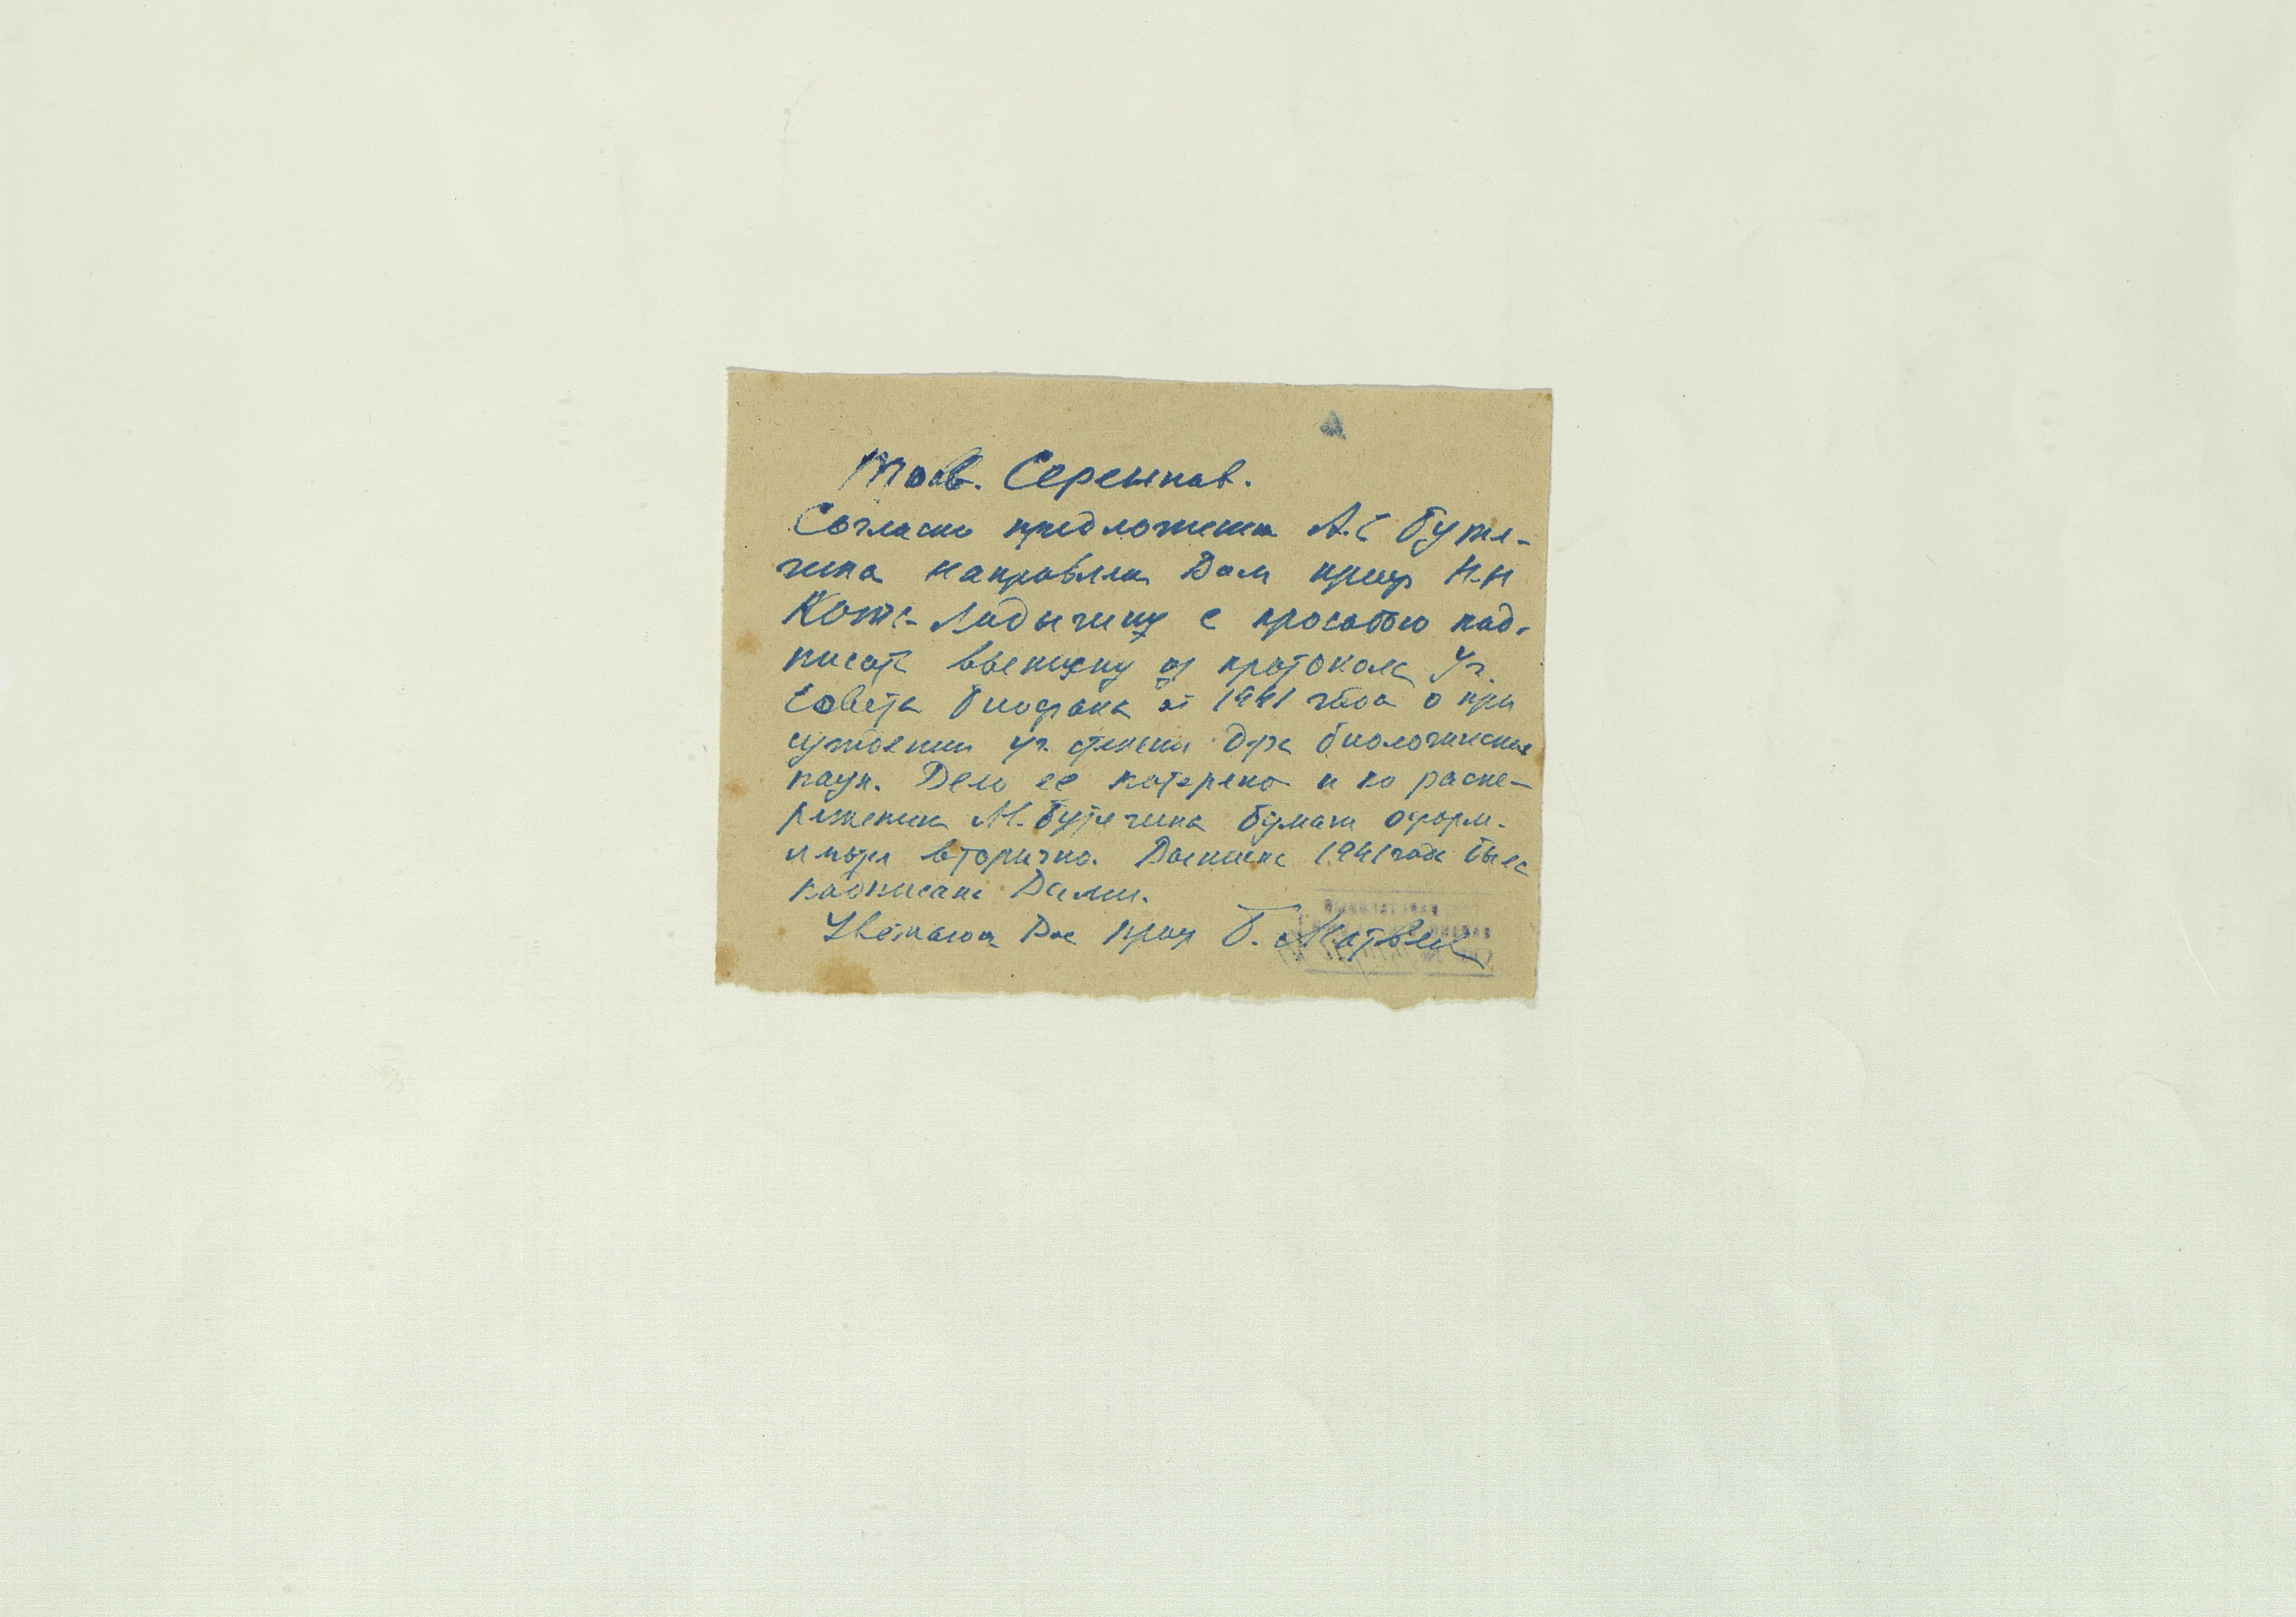 Тов. Серейпов.
Согласно предложения А.С Бутя-
гина направляю Вам проф Н.Н
Котс-Ладыгину с просьбою под-
писать выписку из протокола Уч.
Совета Биофака от 1941 года о при
суждении уч. степени д-ра биологических
наук. Дело ее потеряно и по распо-
ряжению М. Бутягина бумаги оформ-
ляются вторично. Выписка 1941 года была
подписана Вами.
Уважающ Вас проф Б. Матвеев